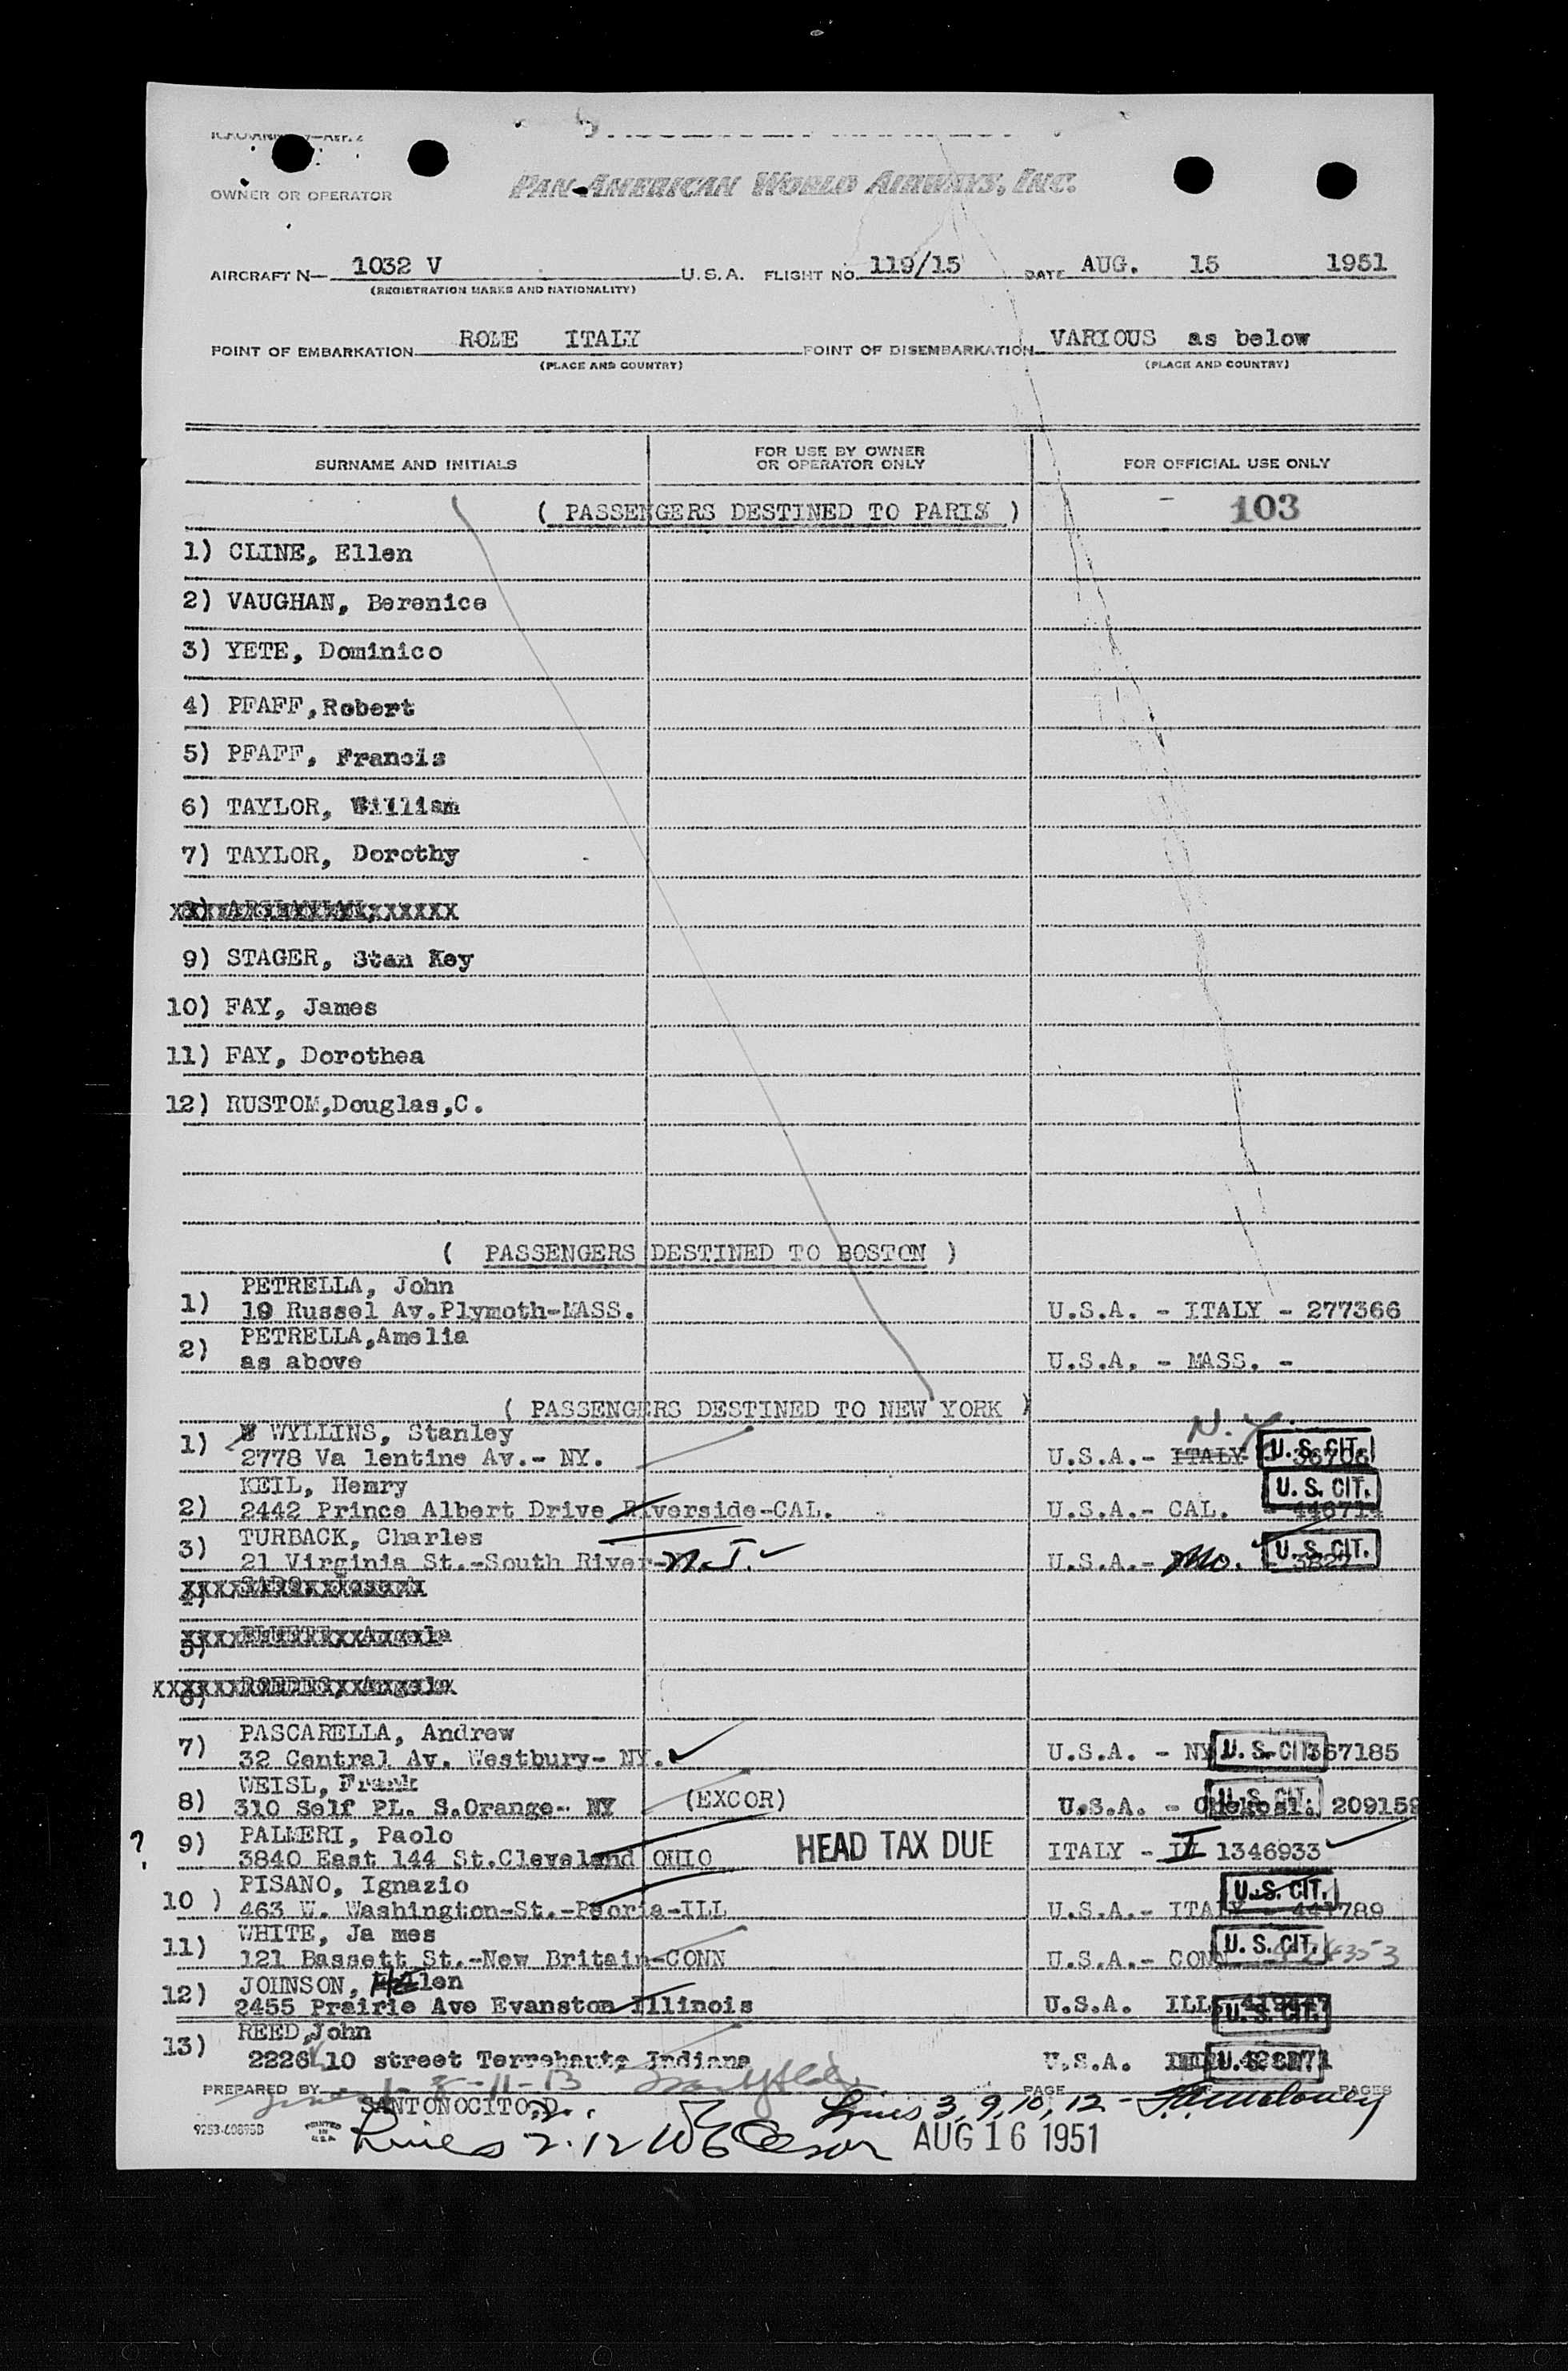 OWNER OR OPERATOR PAN AMERICAN WORLD AIRWAYS, INC.
AIRCRAFT N— 1032 V U.S.A. FLIGHT NO. 119/15 DATE AUG. 15 1951
(REGISTRATION MARKS AND NATIONALITY)
POINT OF EMBARKATION ROME ITALY POINT OF DISEMBARKATION VARIOUS as below
(PLACE AND COUNTRY) (PLACE AND COUNTRY)
SURNAME AND INITIALS FOR USE BY OWNER OR OPERATOR ONLY FOR OFFICIAL USE ONLY
( PASSENGERS DESTINED TO PARIS ) 103
1) CLINE, Ellen
2) VAUGHAN, Berenice
3) YETE, Dominico
4) PFAFF,Robert
5) PFAFF, Francis
6) TAYLOR, William
7) TAYLOR, Dorothy
9) STAGER, Stan Key
10) FAY, James
11) FAY, Dorothea
12) RUSTOM,Douglas,C.
( PASSENGERS DESTINED TO BOSTON )
PETRELLA, John
1) 19 Russel Av.Plymoth-MASS. U.S.A. - ITALY - 277366
PETRELLA,Amelia
2) as above U.S.A. - MASS. -
( PASSENGERS DESTINED TO NEW YORK )
WYLLINS, Stanley N.Y.
1) 2778 Va lentine Av.- NY. U.S.A.- ITALY 36706 U.S. CIT.
KEIL, Henry U.S. CIT.
2) 2442 Prince Albert Drive Riverside-CAL. U.S.A.- CAL. - 446714
TURBACK, Charles
3) 21 Virginia St.-South River- N.J. U.S.A.- Mo. U.S. CIT.
4)
5)
6)
PASCARELLA, Andrew
7) 32 Central Av. Westbury- NY. U.S.A. - NY U.S. CIT. 367185
WEISL, Frank
8) 310 Self PL. S.Orange- NY (EXCOR) U.S.A. - U.S. CIT. 209159
PALMERI, Paolo
? 9) 3840 East 144 St.Cleveland OHIO HEAD TAX DUE ITALY - 1346933
PISANO, Ignazio U.S. CIT.
10 ) 463 W. Washington-St.-Peoria-ILL U.S.A.- ITALY - 441789
WHITE, Ja mes
11) 121 Bassett St.-New Britain-CONN U.S.A.- CONN U.S. CIT.
JOHNSON, Hellen
12) 2455 Prairie Ave Evanston Illinois U.S.A. ILL U.S. CIT.
REED,John
13) 2226 10 street Terrehaute Indiana U.S.A. U.S. CIT.
PREPARED BY PAGE PAGES
SANTONOCITO,D. Lines 3, 9, 10, 12 -
9253-60895B PRINTED IN U.S.A. Lines 2.12 AUG 16 1951